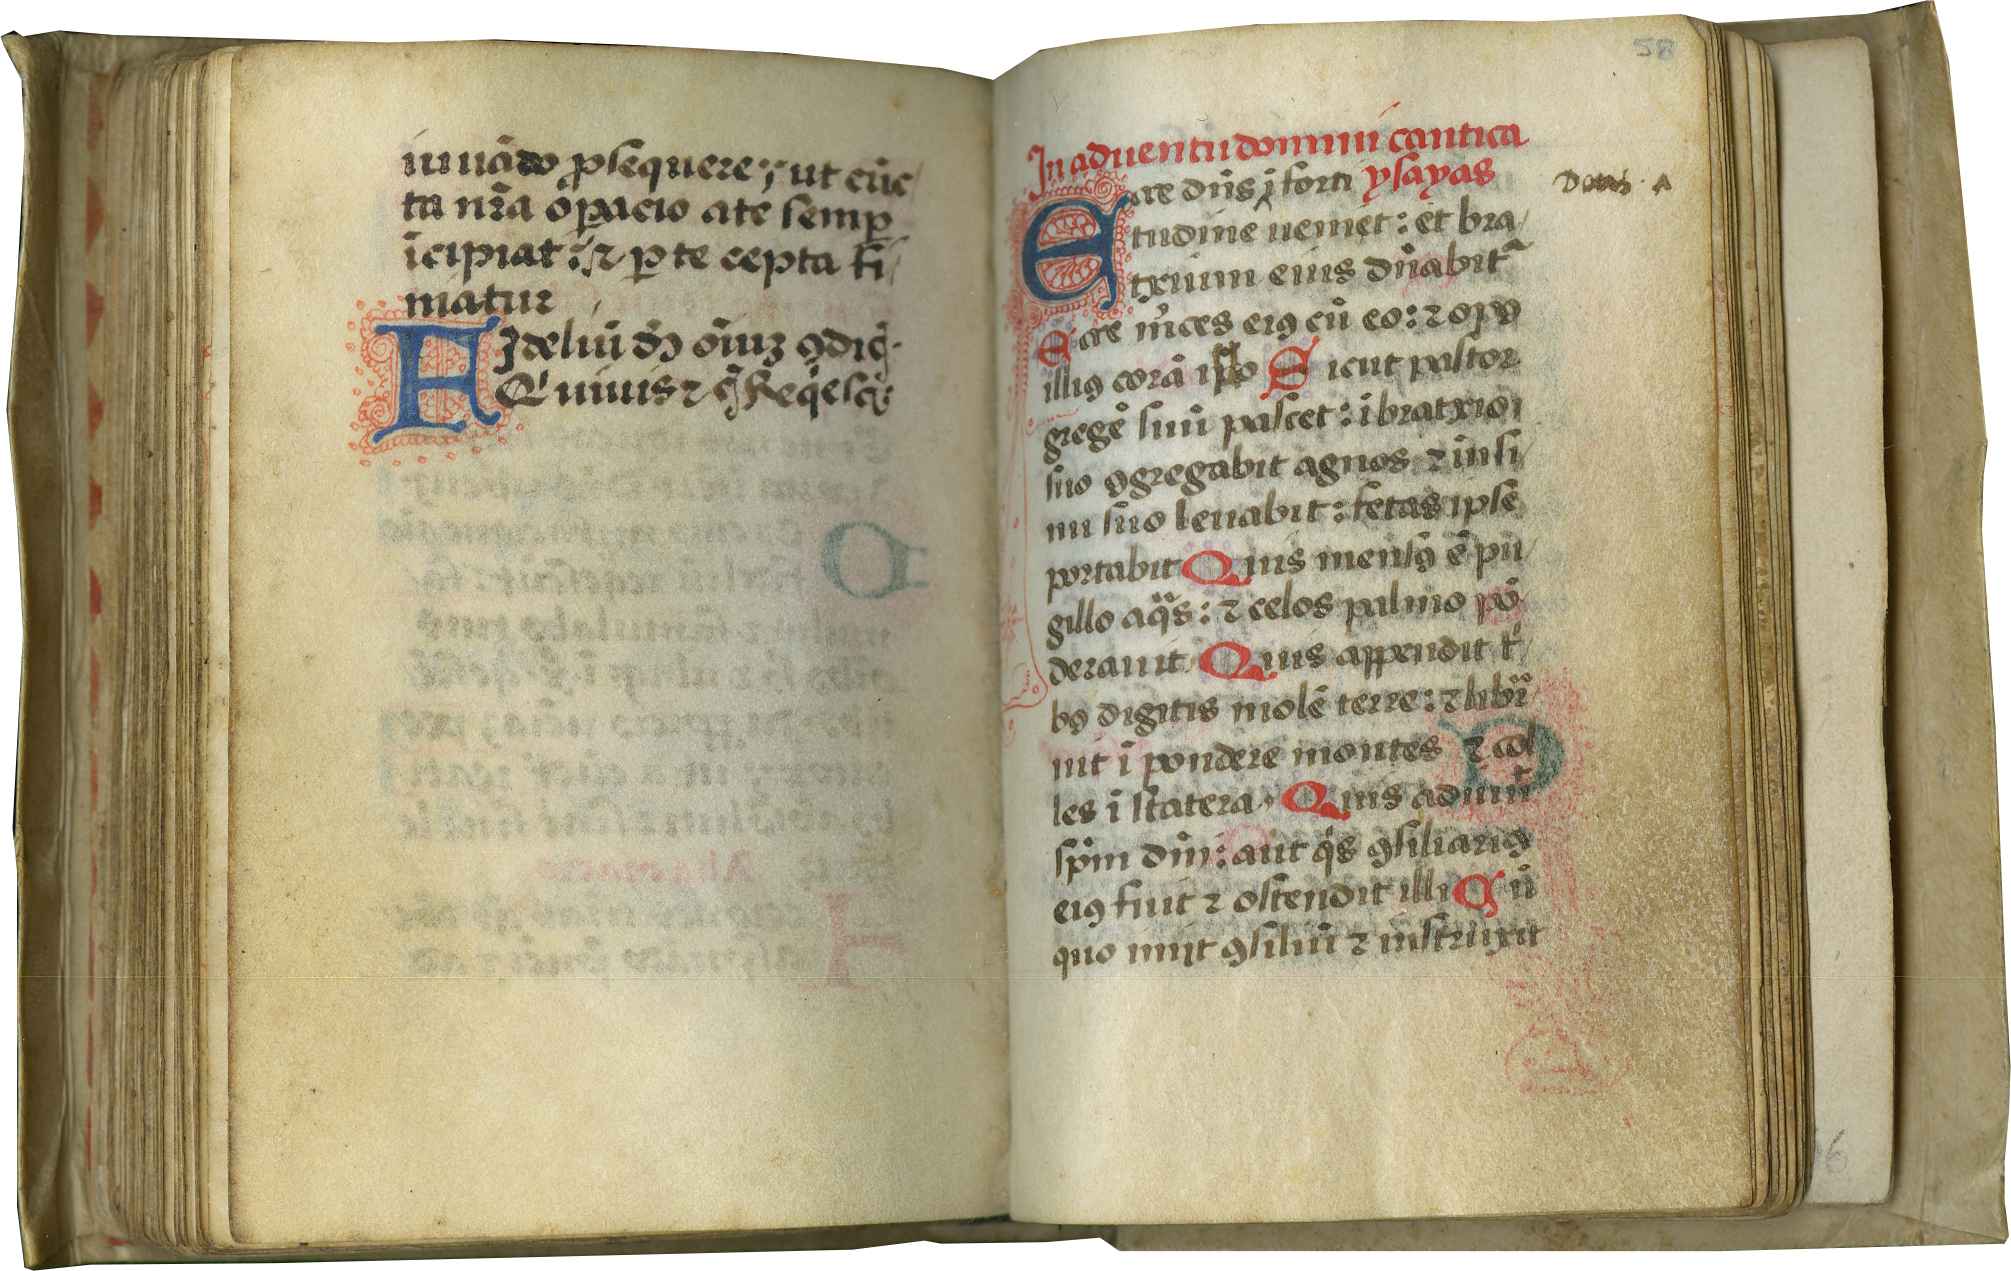 iuuãdo ꝓsequere: ut cũc/
ta nr̃a oꝑacio a te semꝑ
ĩcipiat: ⁊ ꝑ te cepta fi/
niatur
FIdeliũ ds̃ oĩuꝫ ꝯdit̃
Qͥ uiuis ⁊
58
In aduentu domini cantica
ysayas
Ecce dñs ĩ forti
tudine ueniet: et bra/
txium eius dñabitᷣ
Ecce m̃ces eiꝰ cũ eo: ⁊ opꝰ
illiꝰ corã ip̃o Sicut pastor
gregẽ suũ pascet: ĩ bratxio
suo ꝯgregabit agnos ⁊ in si/
nu suo leuabit: fetas ipse
portabit Quis mensꝰ ẽ pu/
gillo aqᷓs: ⁊ celos palmo põ/
derauit Quis appendit tͥ/
bꝰ digitis molẽ terre: ⁊ libr̃
uit ĩ pondere montes ⁊ col
les ĩ statera Quis adiuuit
sp̃m dñi: aut qͥs ꝯsiliariꝰ
eiꝰ fuit ⁊ ostendit illi Cũ
quo iniit ꝯsiliũ ⁊ instruxit
6